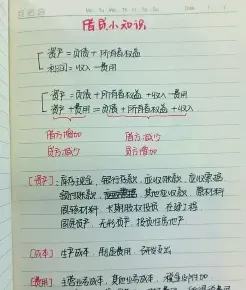 借贷小知识
资产=负债+所有者权益
利润=收入-费用
资产=负债+所有者权益+收入-费用
资产+费用=负债+所有者权益+收入
借方增加 借方减少
贷方减少 贷方增加
[资产]:库存现金,银行存款,应收账款,应收票据
预付账款,其他应收款,原材料
周转材料,长期股权投资,在建工程
固定资产,无形资产,投资性房地产
[成本]生产成本,制造费用,研发支出
[费用]主营业务成本,其他业务成本,税金及附加